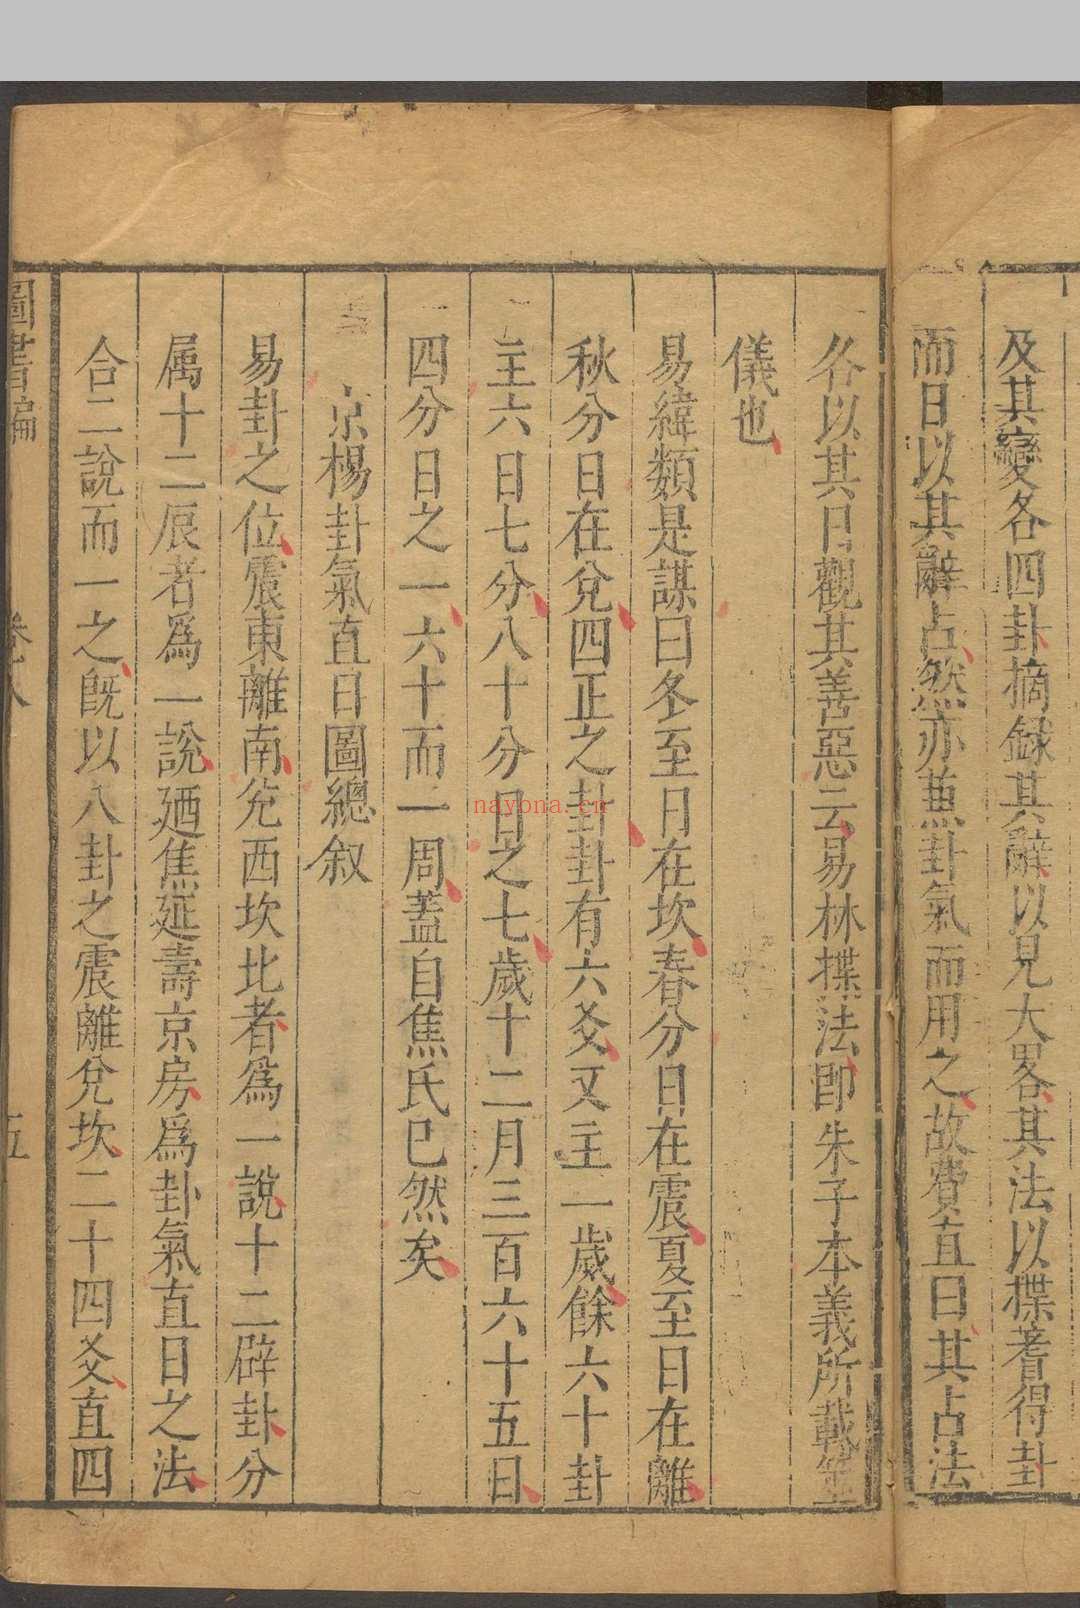 及其變各四卦摘録其辭以見大畧其法以揲蓍得卦
而日以其辭占然亦兼卦氣而用之故費直曰其占法
各以其日觀其善惡云易林揲法即朱子本義所載筮
儀也
易緯類是謀曰冬至日在坎春分日在震夏至日在離
秋分日在兌四正之卦卦有六爻爻主一歲餘六十卦
主六日七分八十分日之七歲十二月三百六十五日
四分日之一六十而一周蓋自焦氏已然矣
京楊卦氣直日圖總叙
易卦之位震東離南兌西坎北者爲一說十二辟卦分
属十二辰者爲一說廼焦延壽京房爲卦氣直日之法
合二說而一之旣以八卦之震離兌坎二十四爻直四
圖書編
卷之八
五
nayona.cn